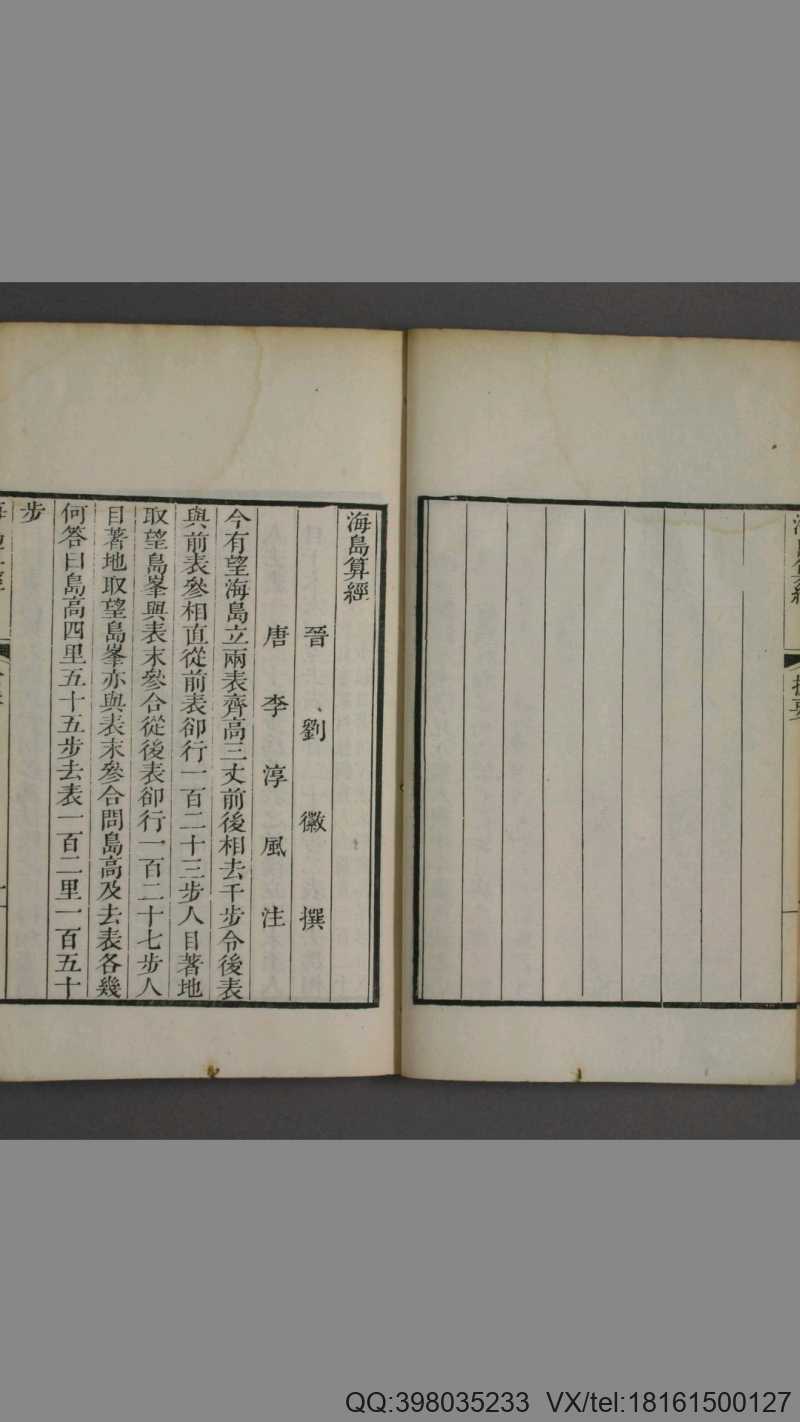 海島算經
晉劉徽撰
唐李淳風注
今有望海島立兩表齊高三丈前後相去千步令後表
與前表參相直從前表卻行一百二十三步人目著地
取望島峯與表末參合從後表卻行一百二十七步人
目著地取望島峯亦與表末參合問島高及去表各幾
何答曰島高四里五十五步去表一百二里一百五十
步
QQ:398035233 VX/tel:18161500127